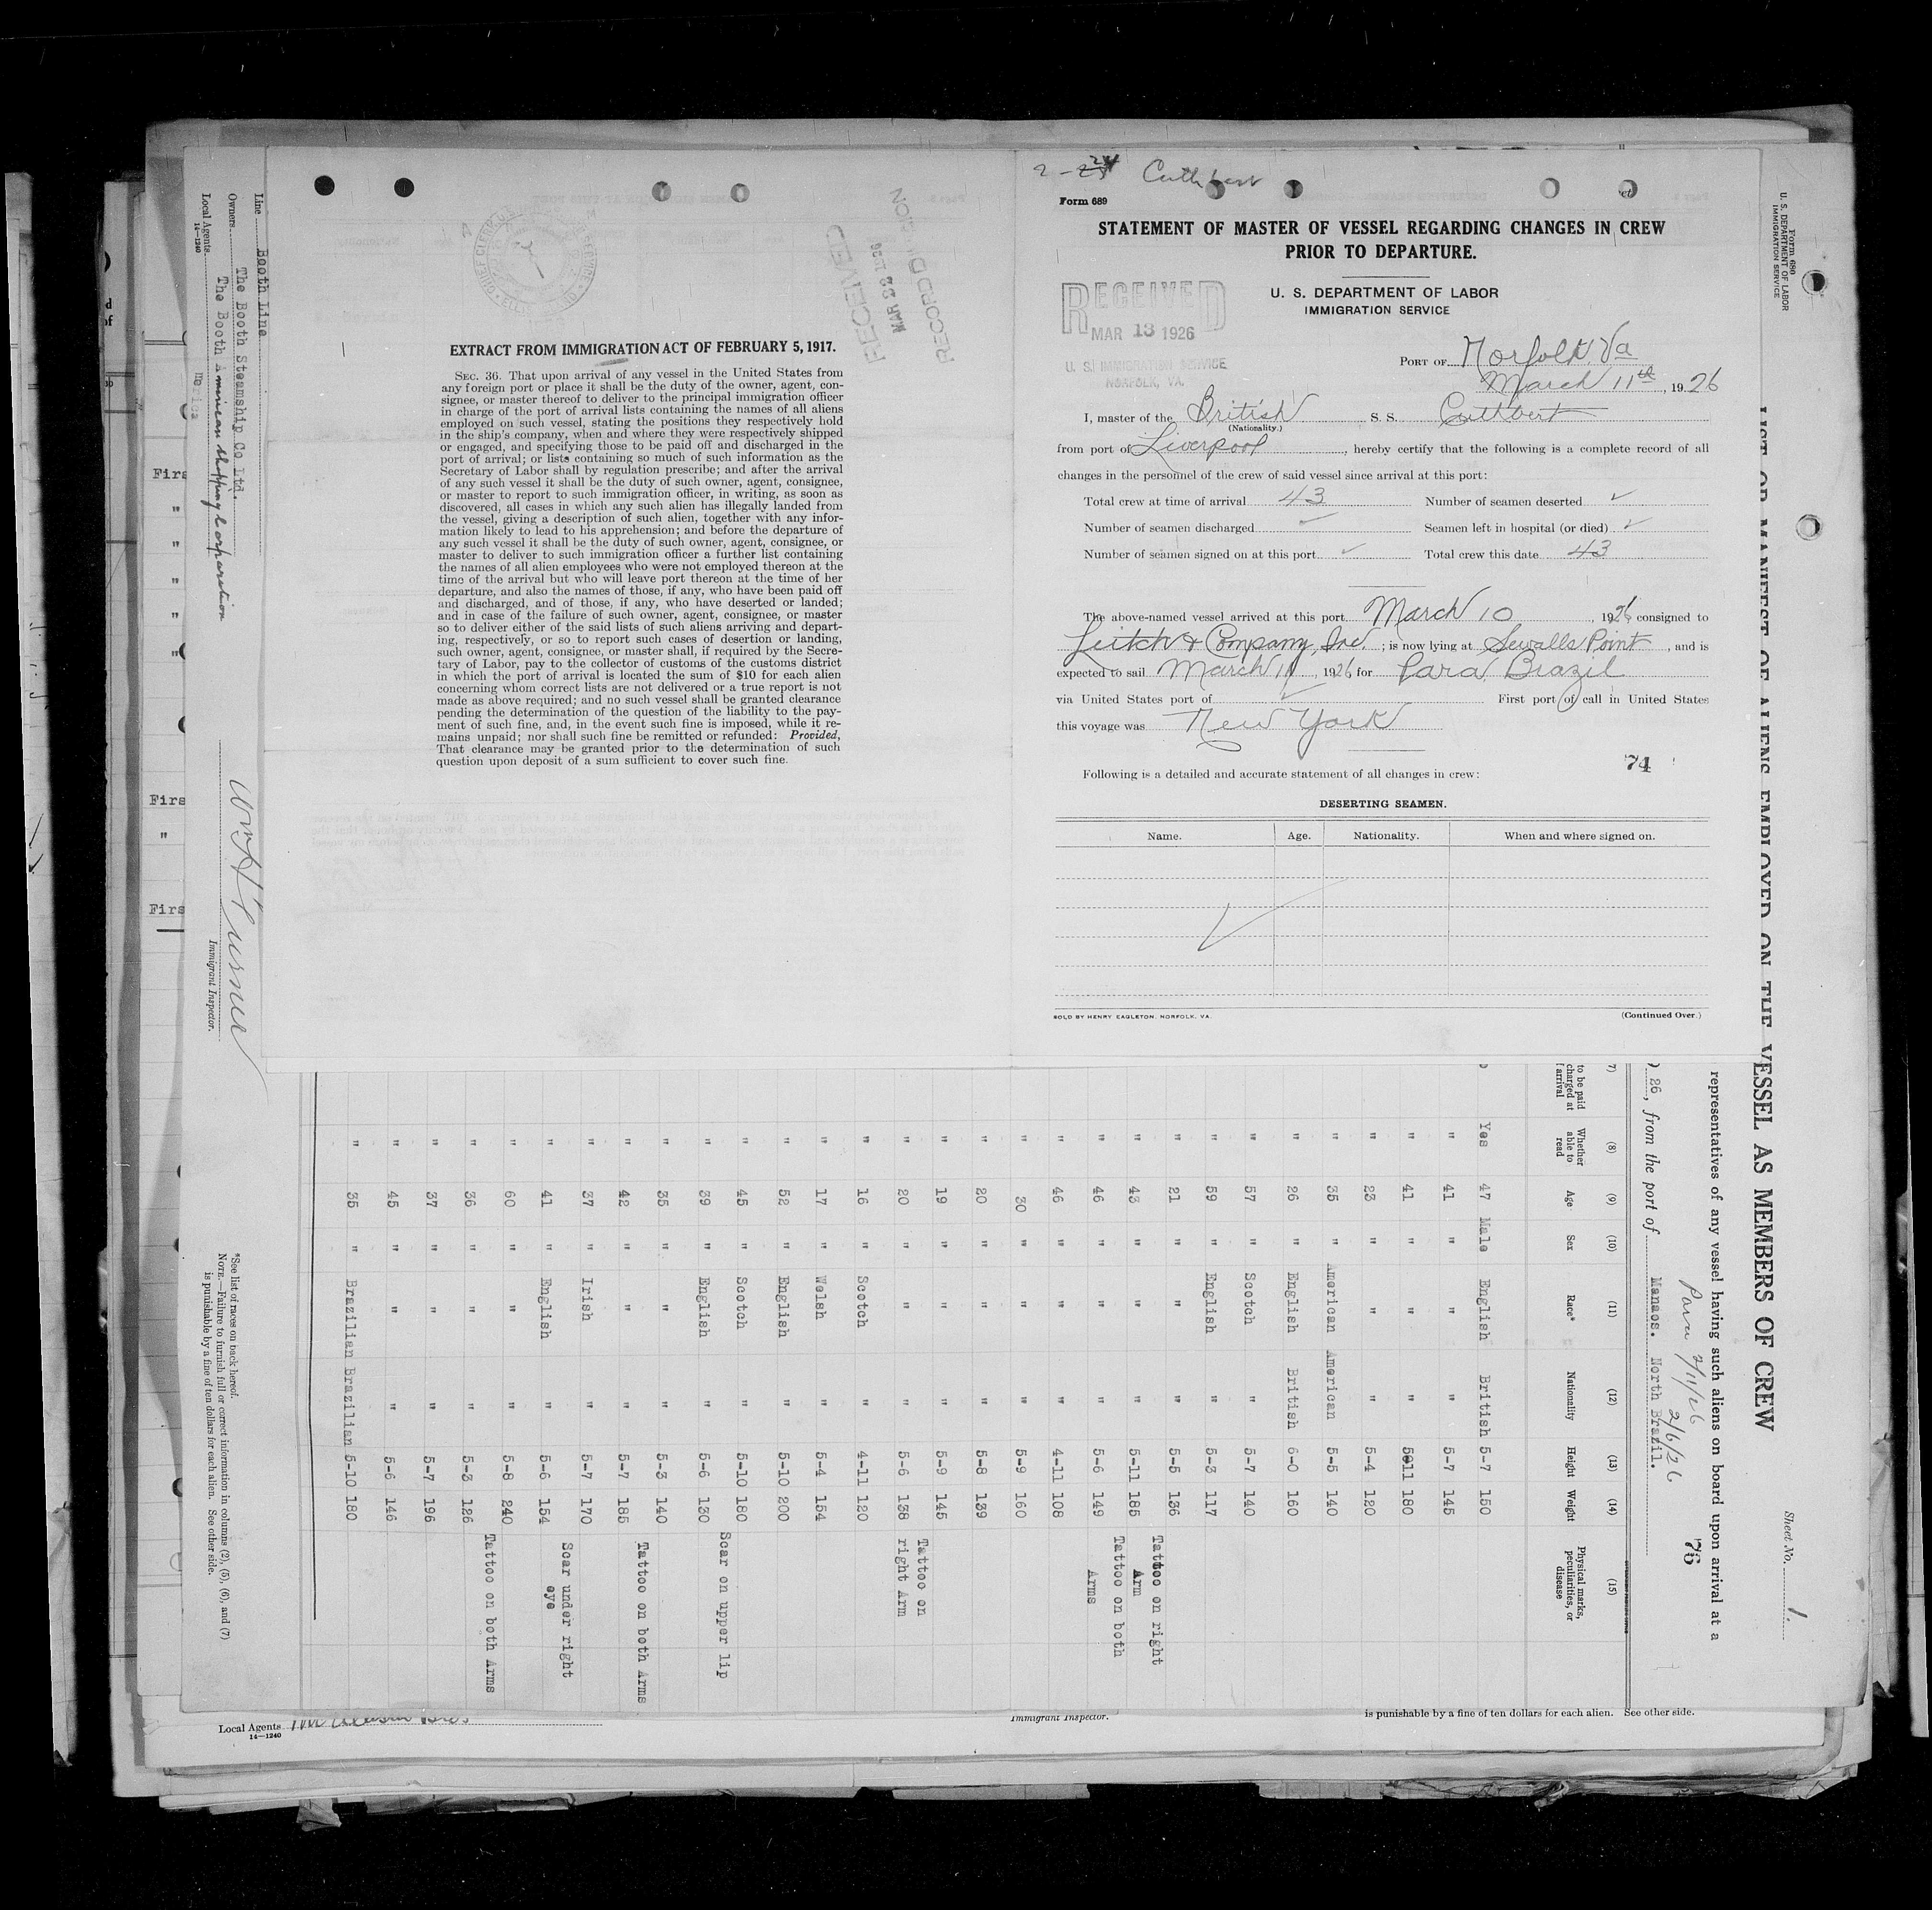 2 - 24 Cuthbert
Form 689
STATEMENT OF MASTER OF VESSEL REGARDING CHANGES IN CREW
PRIOR TO DEPARTURE.
U. S. DEPARTMENT OF LABOR
IMMIGRATION SERVICE
RECEIVED
MAR 13 1926
U. S. IMMIGRATION SERVICE
NORFOLK, VA.
PORT OF Norfolk Va
March 11th, 1926
I, master of the British S. S. Cuthbert
(Nationality.)
from port of Liverpool, hereby certify that the following is a complete record of all
changes in the personnel of the crew of said vessel since arrival at this port:
Total crew at time of arrival 43 Number of seamen deserted ✓
Number of seamen discharged ✓ Seamen left in hospital (or died) ✓
Number of seamen signed on at this port ✓ Total crew this date 43
The above-named vessel arrived at this port March 10, 1926 consigned to
Leitch & Company, Inc. ; is now lying at Sewalls Point, and is
expected to sail March 11, 1926 for Para Brazil
via United States port of ✓ First port of call in United States
this voyage was New York
74
Following is a detailed and accurate statement of all changes in crew:
DESERTING SEAMEN.
Name. Age. Nationality. When and where signed on.
SOLD BY HENRY EAGLETON, NORFOLK, VA.
(Continued Over.)
RECEIVED
MAR 22 1926
RECORD DIVISION
EXTRACT FROM IMMIGRATION ACT OF FEBRUARY 5, 1917.
SEC. 36. That upon arrival of any vessel in the United States from
any foreign port or place it shall be the duty of the owner, agent, con-
signee, or master thereof to deliver to the principal immigration officer
in charge of the port of arrival lists containing the names of all aliens
employed on such vessel, stating the positions they respectively hold
in the ship's company, when and where they were respectively shipped
or engaged, and specifying those to be paid off and discharged in the
port of arrival; or lists containing so much of such information as the
Secretary of Labor shall by regulation prescribe; and after the arrival
of any such vessel it shall be the duty of such owner, agent, consignee,
or master to report to such immigration officer, in writing, as soon as
discovered, all cases in which any such alien has illegally landed from
the vessel, giving a description of such alien, together with any infor-
mation likely to lead to his apprehension; and before the departure of
any such vessel it shall be the duty of such owner, agent, consignee, or
master to deliver to such immigration officer a further list containing
the names of all alien employees who were not employed thereon at the
time of the arrival but who will leave port thereon at the time of her
departure, and also the names of those, if any, who have been paid off
and discharged, and of those, if any, who have deserted or landed;
and in case of the failure of such owner, agent, consignee, or master
so to deliver either of the said lists of such aliens arriving and depart-
ing, respectively, or so to report such cases of desertion or landing,
such owner, agent, consignee, or master shall, if required by the Secre-
tary of Labor, pay to the collector of customs of the customs district
in which the port of arrival is located the sum of $10 for each alien
concerning whom correct lists are not delivered or a true report is not
made as above required; and no such vessel shall be granted clearance
pending the determination of the question of the liability to the pay-
ment of such fine, and, in the event such fine is imposed, while it re-
mains unpaid; nor shall such fine be remitted or refunded: Provided,
That clearance may be granted prior to the determination of such
question upon deposit of a sum sufficient to cover such fine.
Form 680
U. S. DEPARTMENT OF LABOR
IMMIGRATION SERVICE
Sheet No. 1.
LIST OR MANIFEST OF ALIENS EMPLOYED ON THE VESSEL AS MEMBERS OF CREW
representatives of any vessel having such aliens on board upon arrival at a
Para 2/11/26
2/6/26
76
26, from the port of Manaos. North Brazil.
(7) (8) (9) (10) (11) (12) (13) (14) (15)
to be paid charged at arrival Whether able to read Age Sex Race* Nationality Height Weight Physical marks, peculiarities, or disease
Yes 47 Male English British 5-7 150
" 41 " " " 5-7 145
" 41 " " " 5-11 180
" 23 " " " 5-4 120
" 35 " American American 5-5 140
" 26 " English British 6-0 160
" 57 " Scotch " 5-7 140
" 59 " English " 5-3 117
" 21 " " " 5-5 136
" 43 " " " 5-11 185 Tattoo on right Arm
" 46 " " " 5-6 149 Tattoo on both Arms
" 46 " " " 4-11 108
" 30 " " " 5-9 160
" 20 " " " 5-8 139
" 19 " " " 5-9 145
" 20 " " " 5-6 138 Tattoo on right Arm
" 16 " Scotch " 4-11 120
" 17 " Welsh " 5-4 154
" 52 " English " 5-10 200
" 45 " Scotch " 5-10 180
" 39 " English " 5-6 130 Scar on upper lip
" 35 " " " 5-3 140
" 42 " " " 5-7 185 Tattoo on both Arms
" 37 " Irish " 5-7 170
" 41 " English " 5-6 154 Scar under right eye
" 60 " " " 5-8 240
" 36 " " " 5-3 126 Tattoo on both Arms
" 37 " " " 5-7 196
" 45 " " " 5-6 146
" 35 " Brazilian Brazilian 5-10 180
*See list of races on back hereof.
NOTE.—Failure to furnish full or correct information in columns (2), (5), (6), and (7)
is punishable by a fine of ten dollars for each alien. See other side.
Line Booth Line
Owners The Booth Steamship Co Ltd.
Local Agents The Booth American Shipping Corporation
14—1240
Immigrant Inspector.
Firs
"
"
"
"
"
Firs
"
Firs
Local Agents
14—1240
Immigrant Inspector.
is punishable by a fine of ten dollars for each alien. See other side.